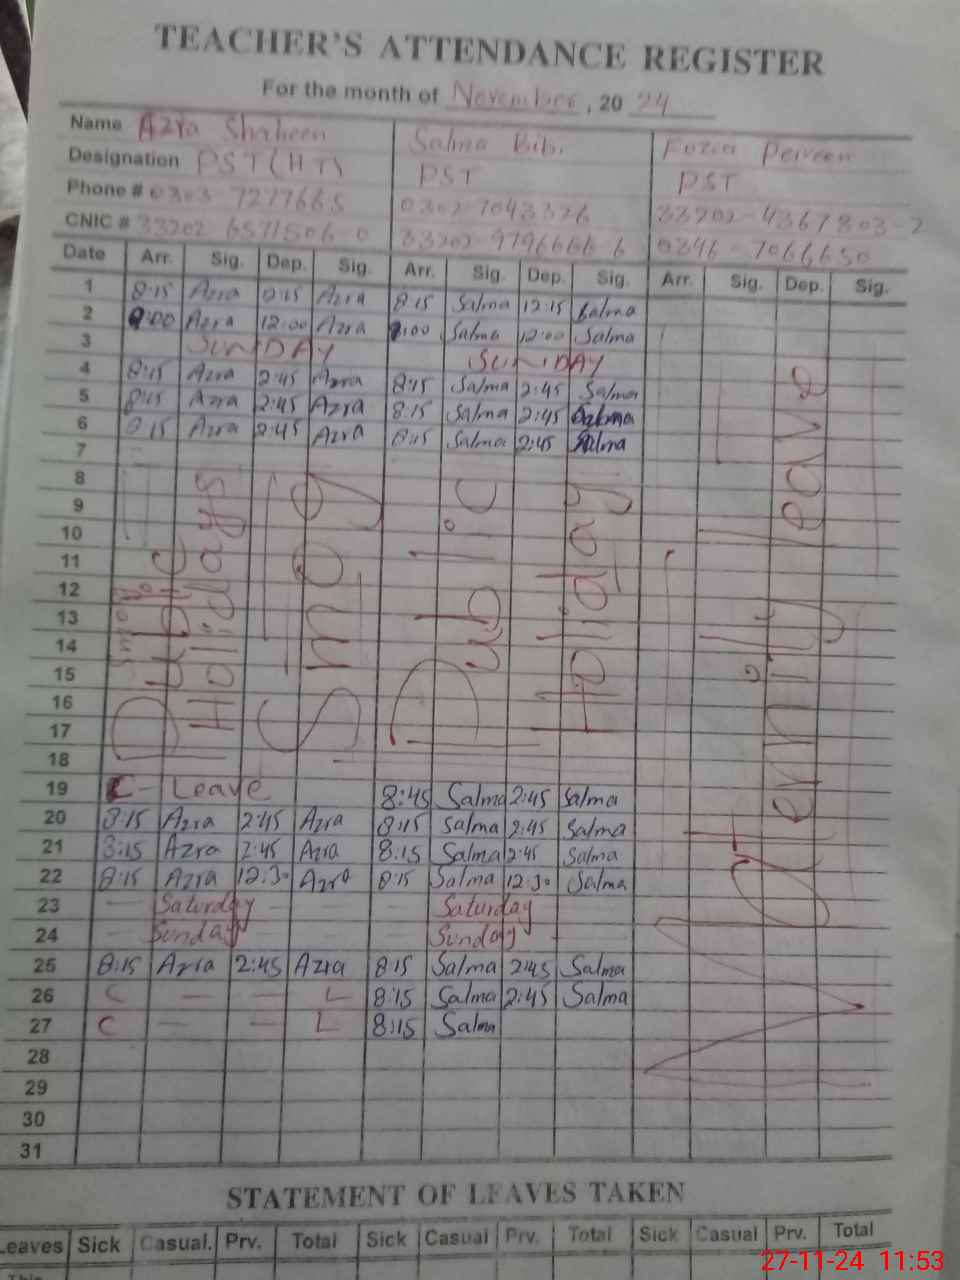 TEACHER'S ATTENDANCE REGISTER
For the month of November, 20 24
Name Azra Shaheen Salma Bibi Fozia Perveen
Designation PST (HT) PST PST
Phone # 0303-7277665 0302-7043326 33202-4367803-2
CNIC # 33202 6571506-0 33202-9796666 6 0346-7066650
Date Arr. Sig. Dep. Sig. Arr. Sig. Dep. Sig. Arr. Sig. Dep. Sig.
1 8:15 Azra Azra 8:15 Salma 12:15 Salma
2 9:00 Azra 12:00 Azra 9:00 Salma 12:00 Salma
3 SUNDAY SUNDAY
4 8:15 Azra 2:45 Azra 8:15 Salma 2:45 Salma
5 8:15 Azra 2:45 Azra 8:15 Salma 2:45 Salma
6 8:15 Azra 2:45 Azra 8:15 Salma 2:45 Salma
7
8
9
10
11
12
13
14
15
16
17
18
Holidays
Smog
Public
Holiday
Maternity leave
19 C- Leave 8:45 Salma 2:45 Salma
20 8:15 Azra 2:45 Azra 8:15 Salma 2:45 Salma
21 8:15 Azra 2:45 Azra 8:15 Salma 2:45 Salma
22 8:15 Azra 12:30 Azra 8:15 Salma 12:30 Salma
23 — Saturday — — Saturday
24 — Sunday — — Sunday
25 8:15 Azra 2:45 Azra 8:15 Salma 2:45 Salma
26 C — — L 8:15 Salma 2:45 Salma
27 C — — L 8:15 Salma
28
29
30
31
STATEMENT OF LEAVES TAKEN
Leaves Sick Casual. Prv. Total Sick Casual Prv. Total Sick Casual Prv. Total
27-11-24 11:53